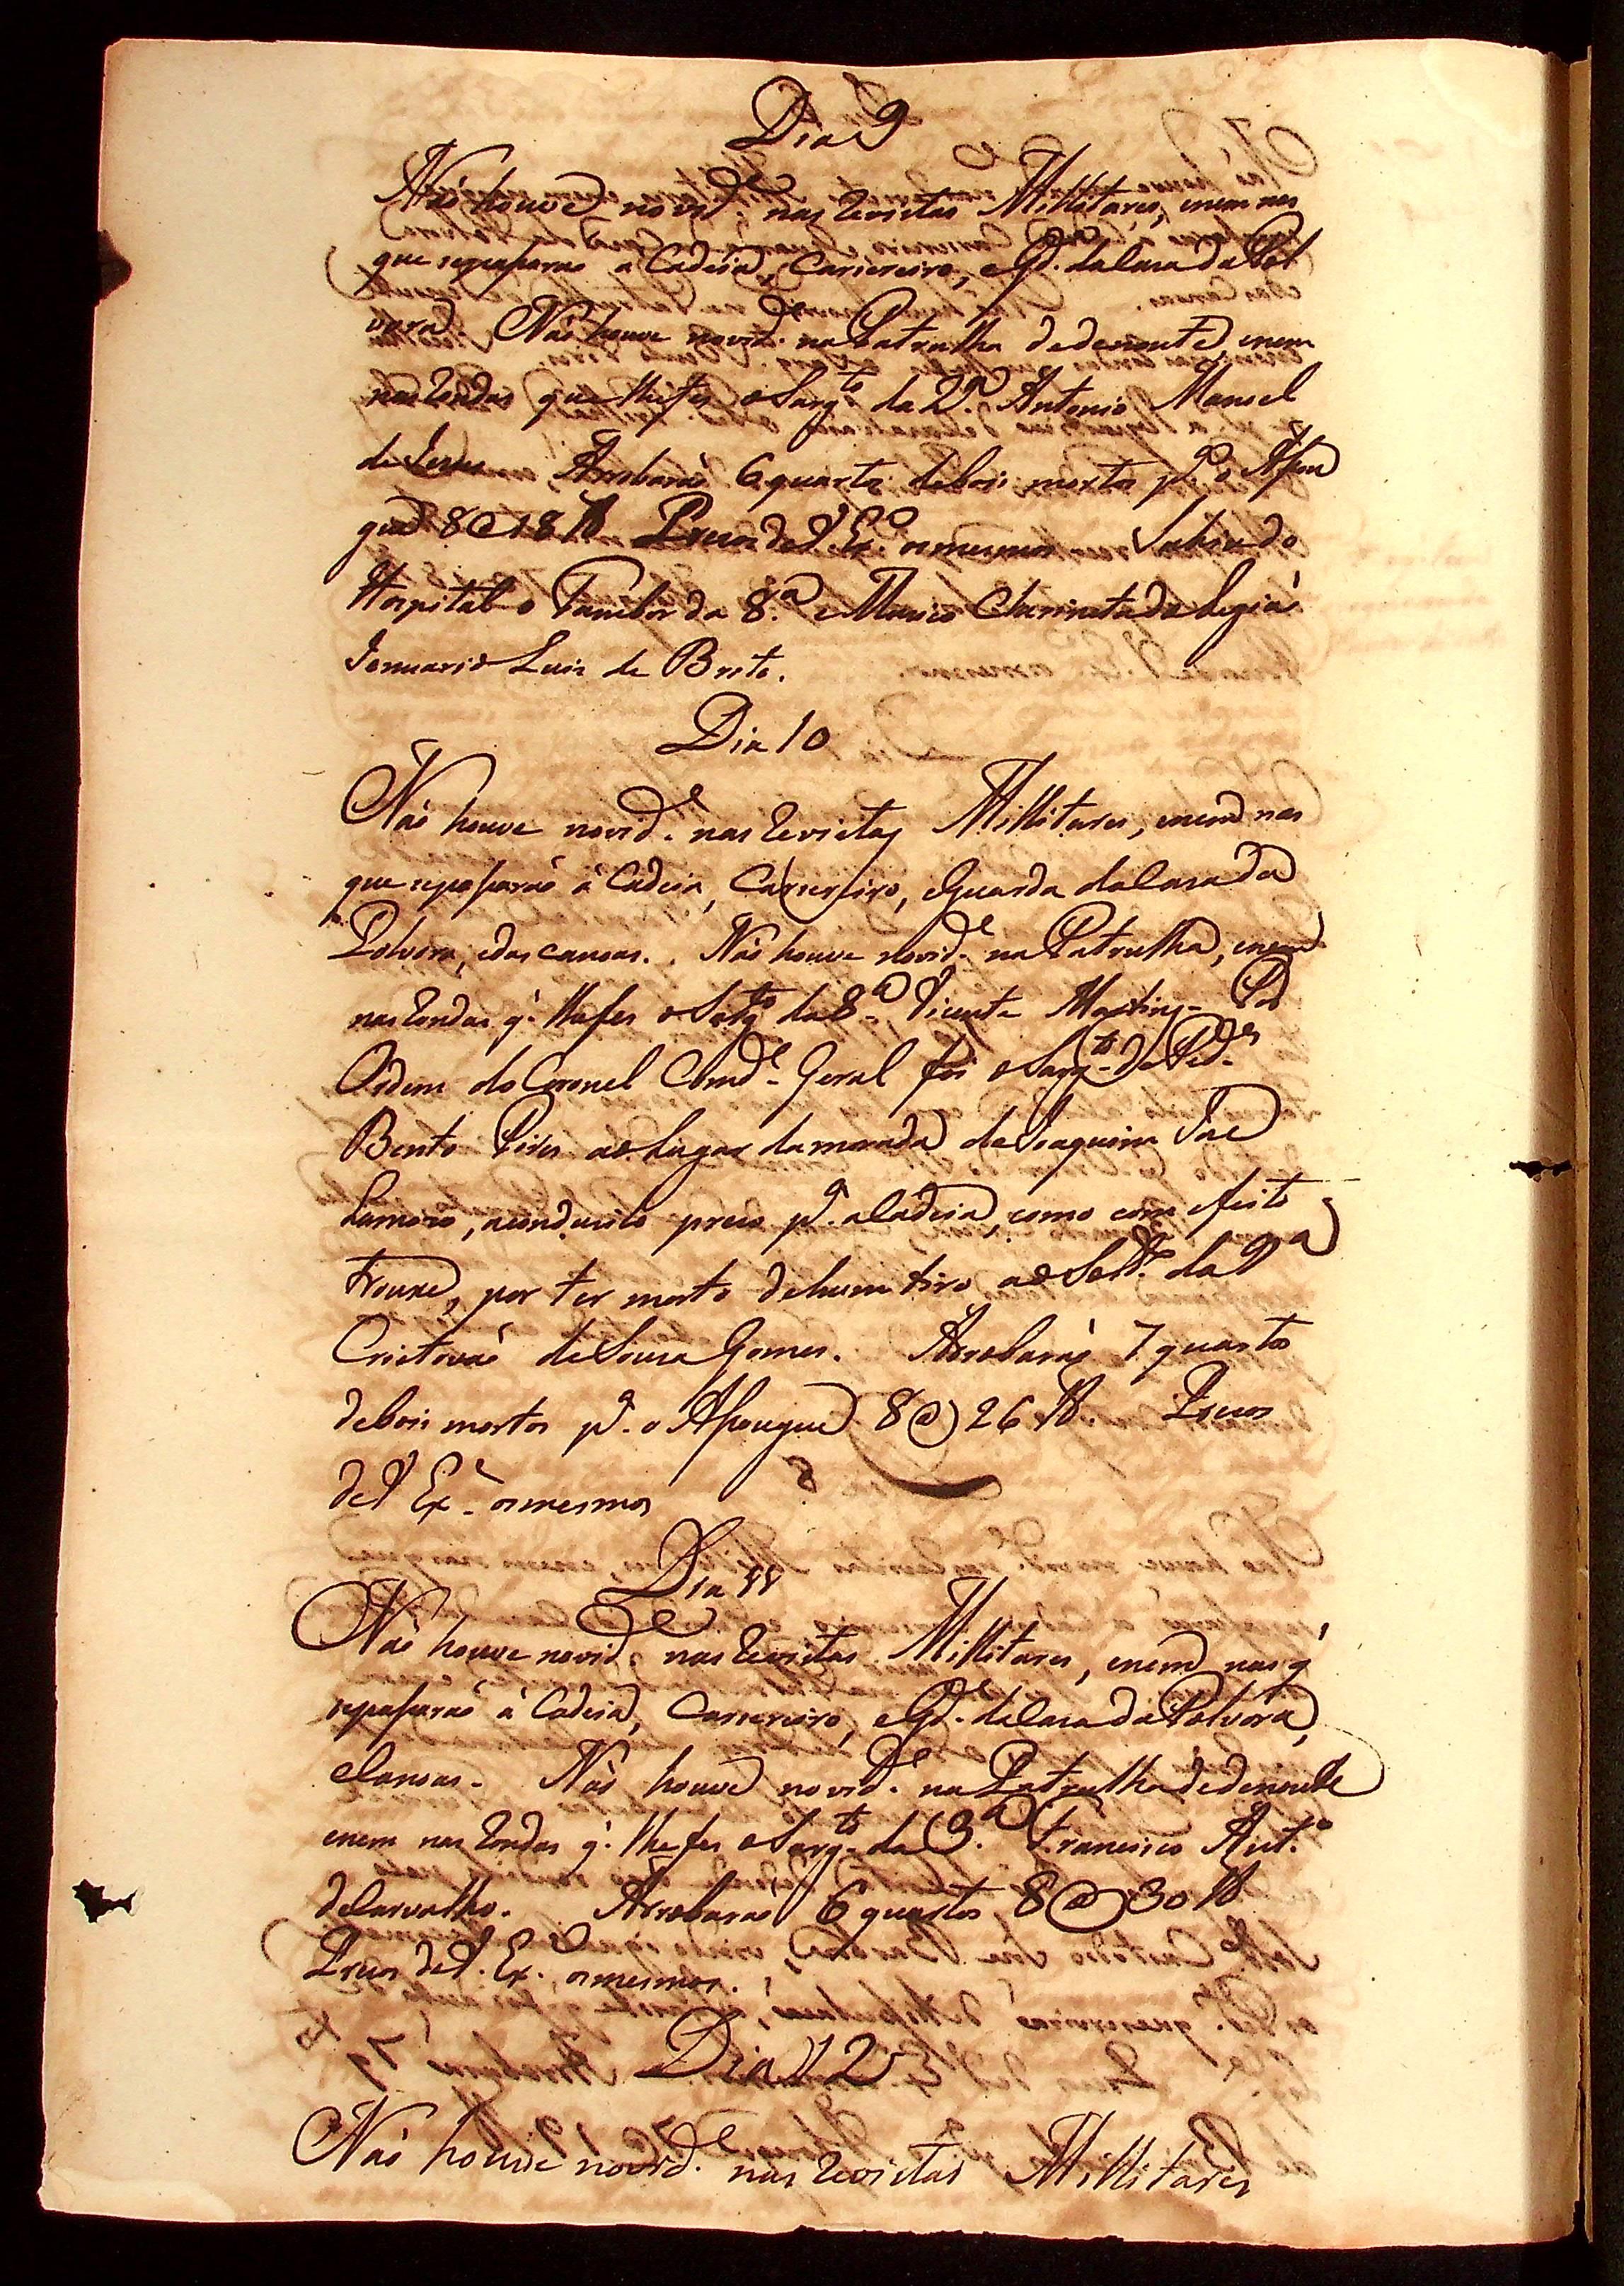 Dia 9
Não houve novid.e nas revistas Millitares, enem nas
que repasarao a Cadeia, Carcereiro, eGd.a daCasa daPol
vora. Não houve novid.e naPatrulha dedenoute, enem
nasrondas que lhefes oSarg.to da 2.a Antonio Manoel
de Arrobarão 6 quartos debois mortos p.a o Asou
gue 8@ 18 lb Presos deV. Ex.a osmesmos Sahio do
Hospital o Tambor da 8.a e Musico Clarineta da Legiaõ
Januario Luis de Brito.
Dia 10
Não houve novid.e nas revistas Millitares, enem nas
que repasarão á Cadeia, Carcereiro, eGuarda daCasa da
Polvora, edas canoas. Não houve novid.e na Patrulha, enem
nas rondas q' lhefes oSarg.to da 8.a Vicente Martins. Por
Ordem do Coronel Comd.e Geral foi oSarg.to de Ped.es
Bento Pires ao Lugar damorada deJoaquim Joze
Lamoso, aconduzilo prezo p.a aCadeia, como com efeito
trouxe, por ter morto dehum tiro ao Sold.o da 7.a
Cristovaõ deSousa Gomes. Arrobaraõ 7 quartos
debois mortos p.a o Asougue 8@ 26 lb. Presos
deV. Ex.a osmesmos
Dia 11
Não houve novid.e nas revistas Millitares, enem nas q'
repasaraõ á Cadeia, Carcereiro, eGd.a daCasa daPolvora,
eCanoas. Não houve novid.e na Patrulha dedenoute
enem nas rondas q' lhefes oSarg.to da 3.a Francisco Ant.o
deCarvalho. Arrobaraõ 6 quartos 8@ 30 lb
Presos deV. Ex.a osmesmos.
Dia 12
Não houve novid.e nas revistas Millitares